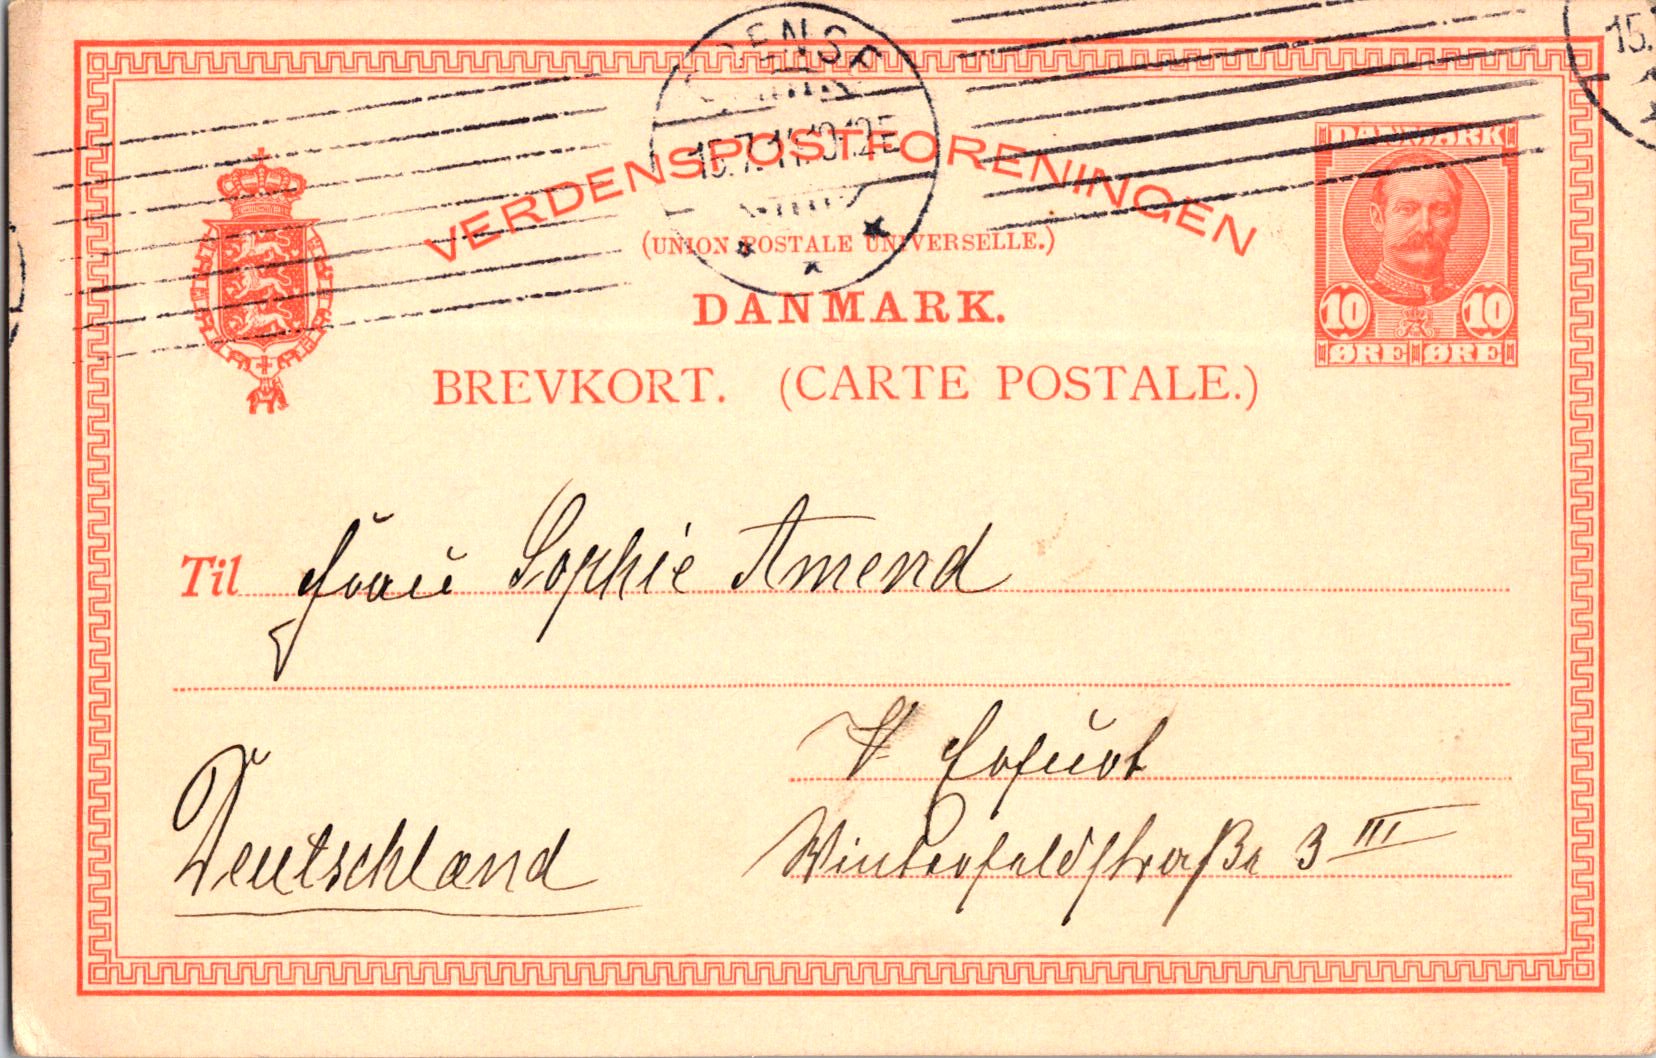 ODENSE
15.7.11.10-12E
15.
VERDENSPOSTFORENINGEN
(UNION POSTALE UNIVERSELLE.)
DANMARK.
BREVKORT. (CARTE POSTALE.)
DANMARK
10 10
ØRE ØRE
Til Frau Sophie Amend
Erfurt
Deutschland
Winterfeldstraße 3 III